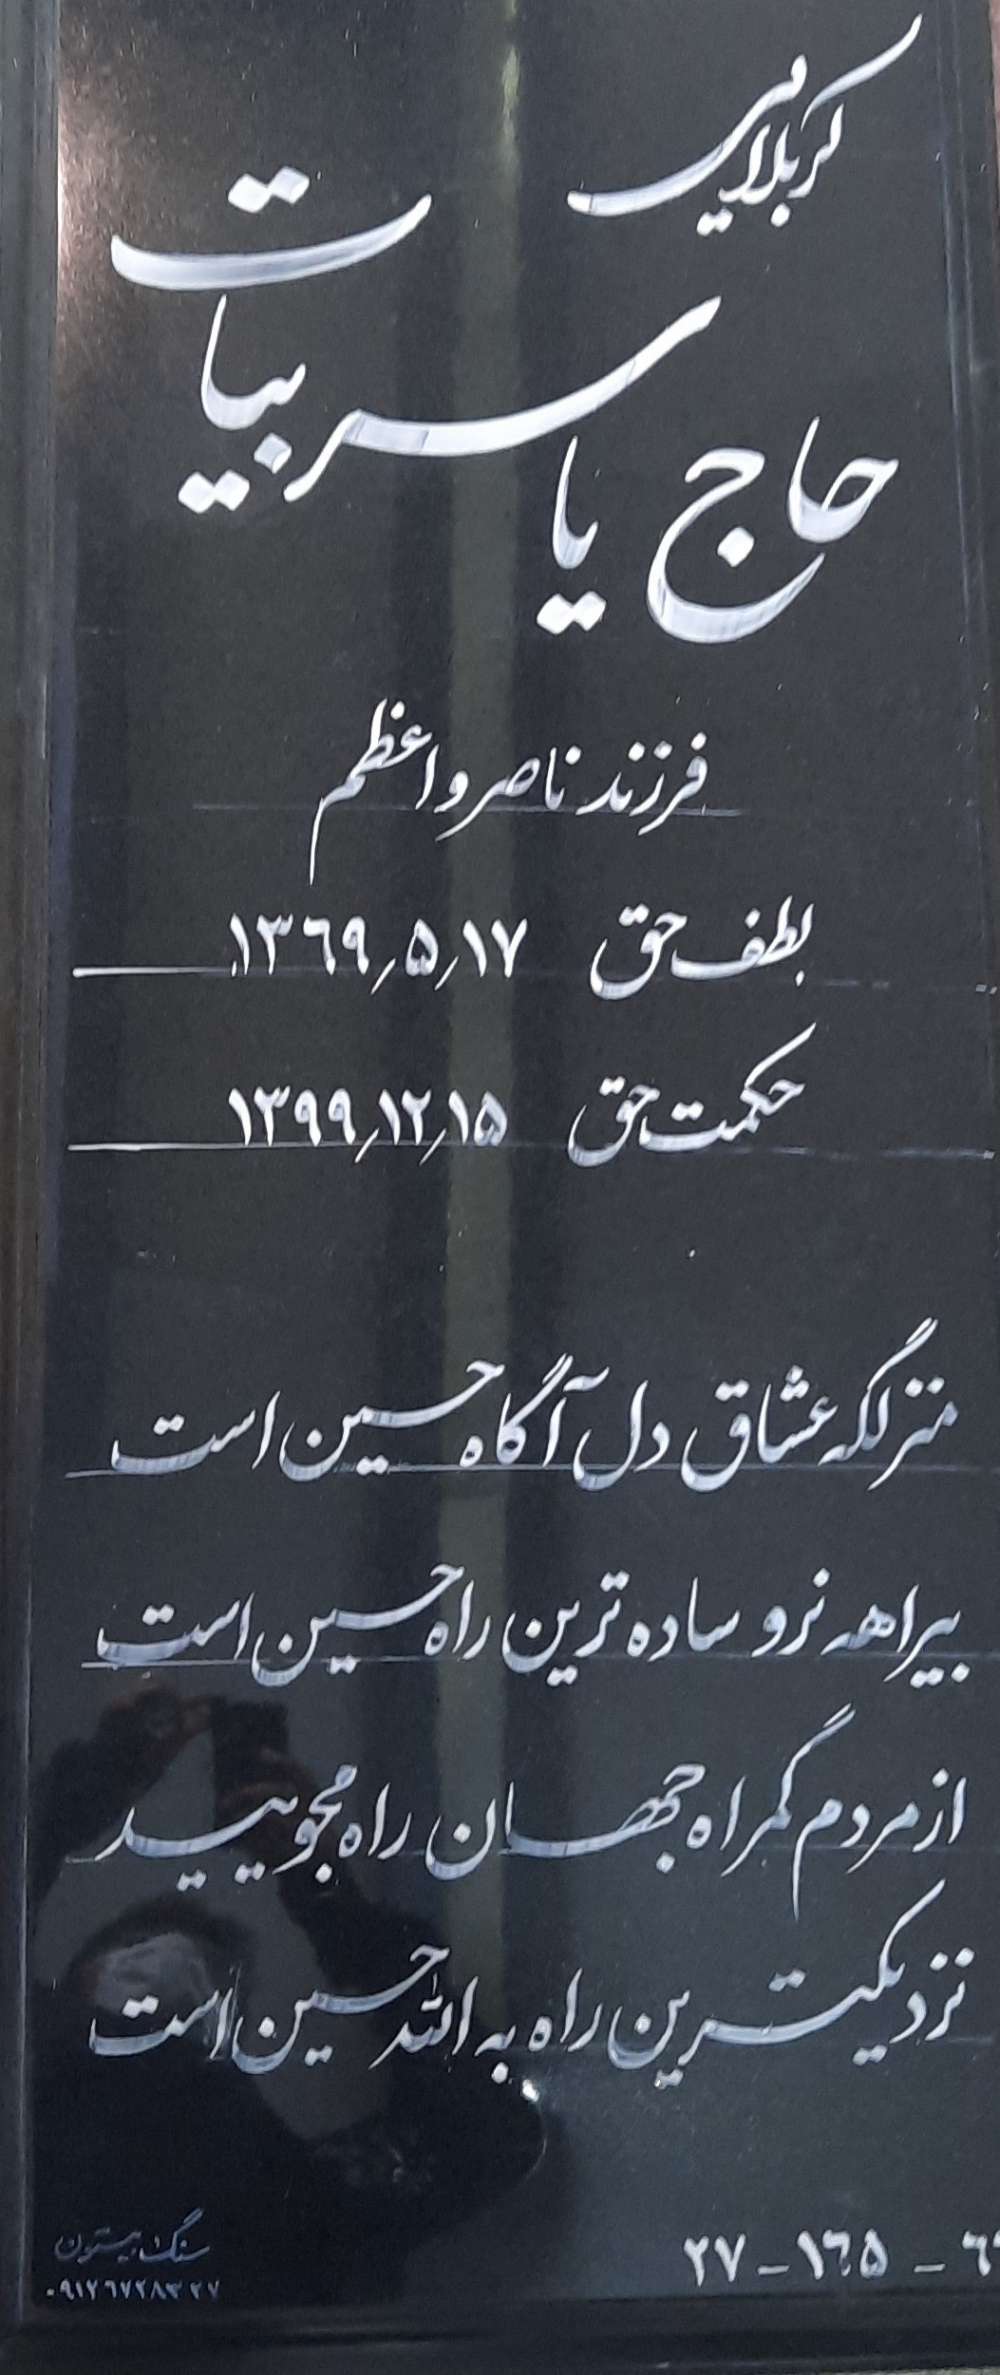 کربلایی
حاج یاسر بیات
فرزند ناصر و اعظم
لطف حق ۱۳۶۹٫۵٫۱۷
حکمت حق ۱۳۹۹٫۱۲٫۱۵
منزلگه عشاق دل آگاه حسین است
بیراهه نرو ساده ترین راه حسین است
از مردم گمراه جهان راه مجویید
نزدیکترین راه به الله حسین است
۲۷ - ۱۶۵ -
سنگ بیستون